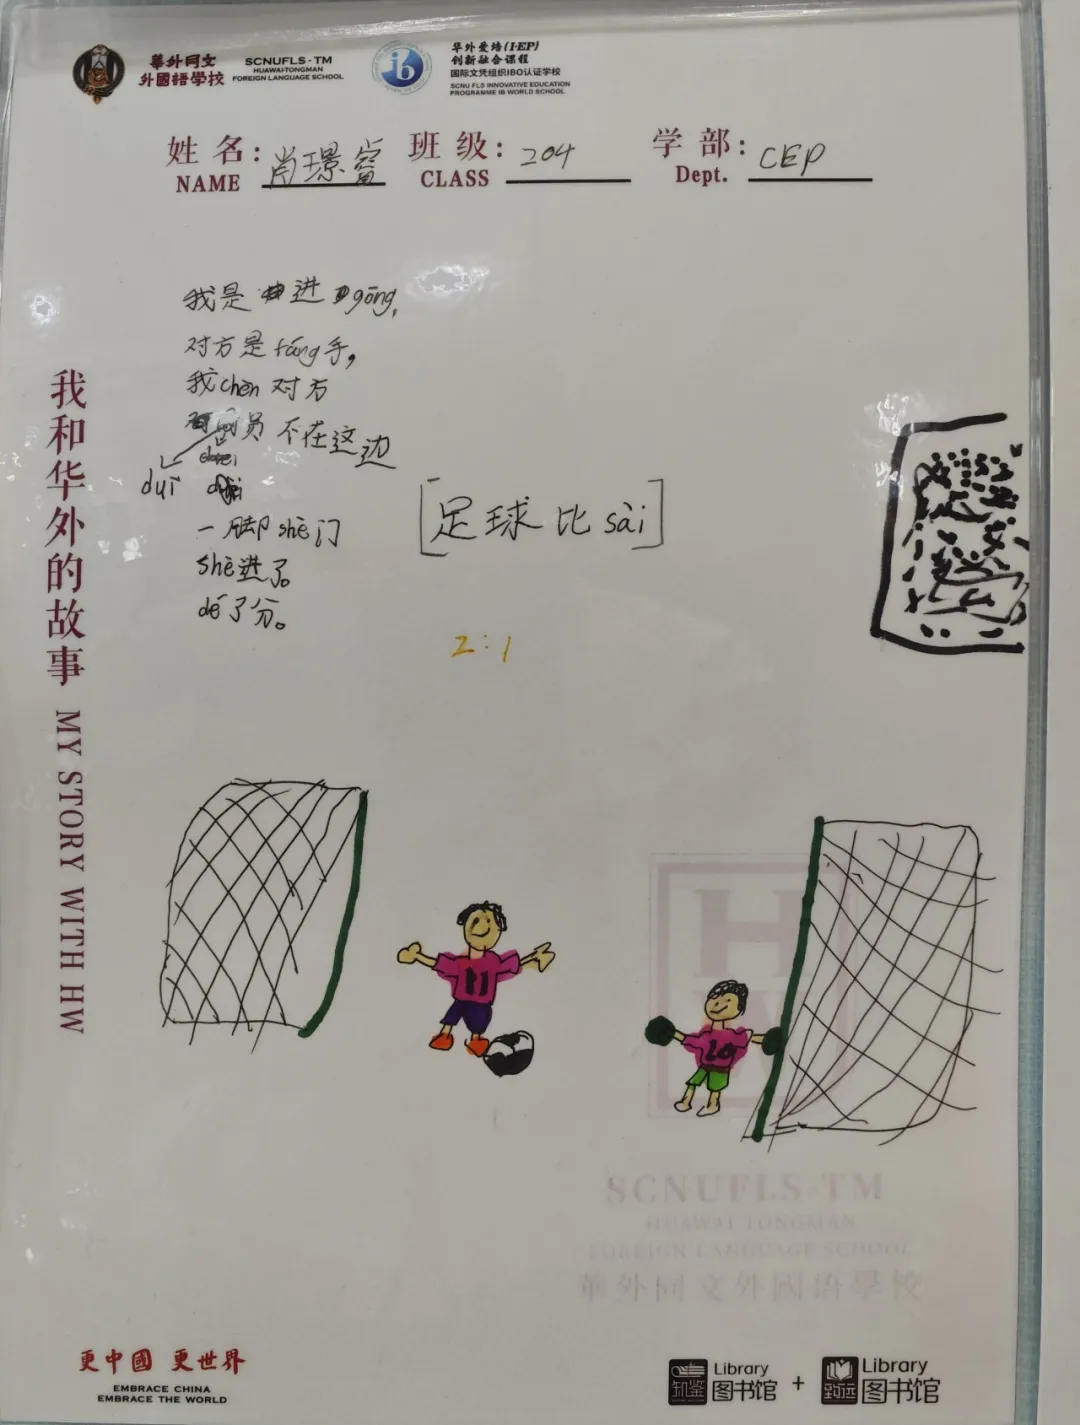 華外同文
外國語學校
SCNUFLS-TM
HUAWAI-TONGMAN
FOREIGN LANGUAGE SCHOOL
ib
华外爱培(I·EP)
创新融合课程
国际文凭组织IBO认证学校
SCNU FLS INNOVATIVE EDUCATION
PROGRAMME IB WORLD SCHOOL
姓名: 肖璟 班级: 204 学部: CEP
NAME CLASS Dept.
我和华外的故事 MY STORY WITH HW
我是进gōng,
对方是fáng手,
我chèn对方
duì员不在这边
一脚shè门
shè进了。
dé了分。
[足球比sài]
2:1
11
HW
SCNUFLS-TM
HUAWAI TONGMAN
FOREIGN LANGUAGE SCHOOL
華外同文外國語學校
更中國 更世界
EMBRACE CHINA
EMBRACE THE WORLD
Library
图书馆
+
Library
图书馆